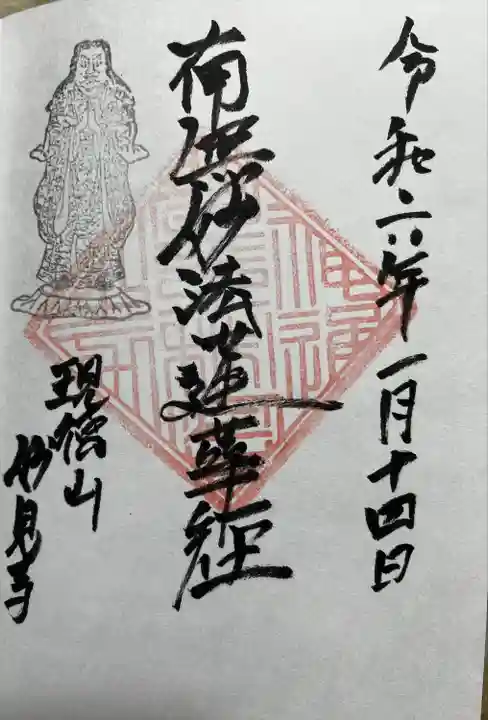 令和六年一月十四日
南無妙法蓮華経
現僧山
妙見寺